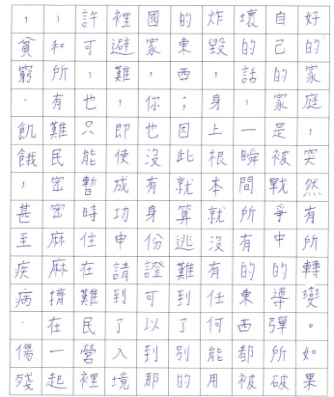 好的家庭，突然有所轉變。如果
自己的家是被戰爭中的導彈所破
壞的話，一瞬間所有的東西都被
炸毀，身上根本就沒有任何能用
的東西；因此就算逃難到了別的
國家，你也沒有身份證可以到那
裡避難，即使成功申請到了入境
許可，也只能暫時住在難民營裡
，和所有難民密密麻麻擠在一起
，貧窮、飢餓，甚至疾病、傷殘